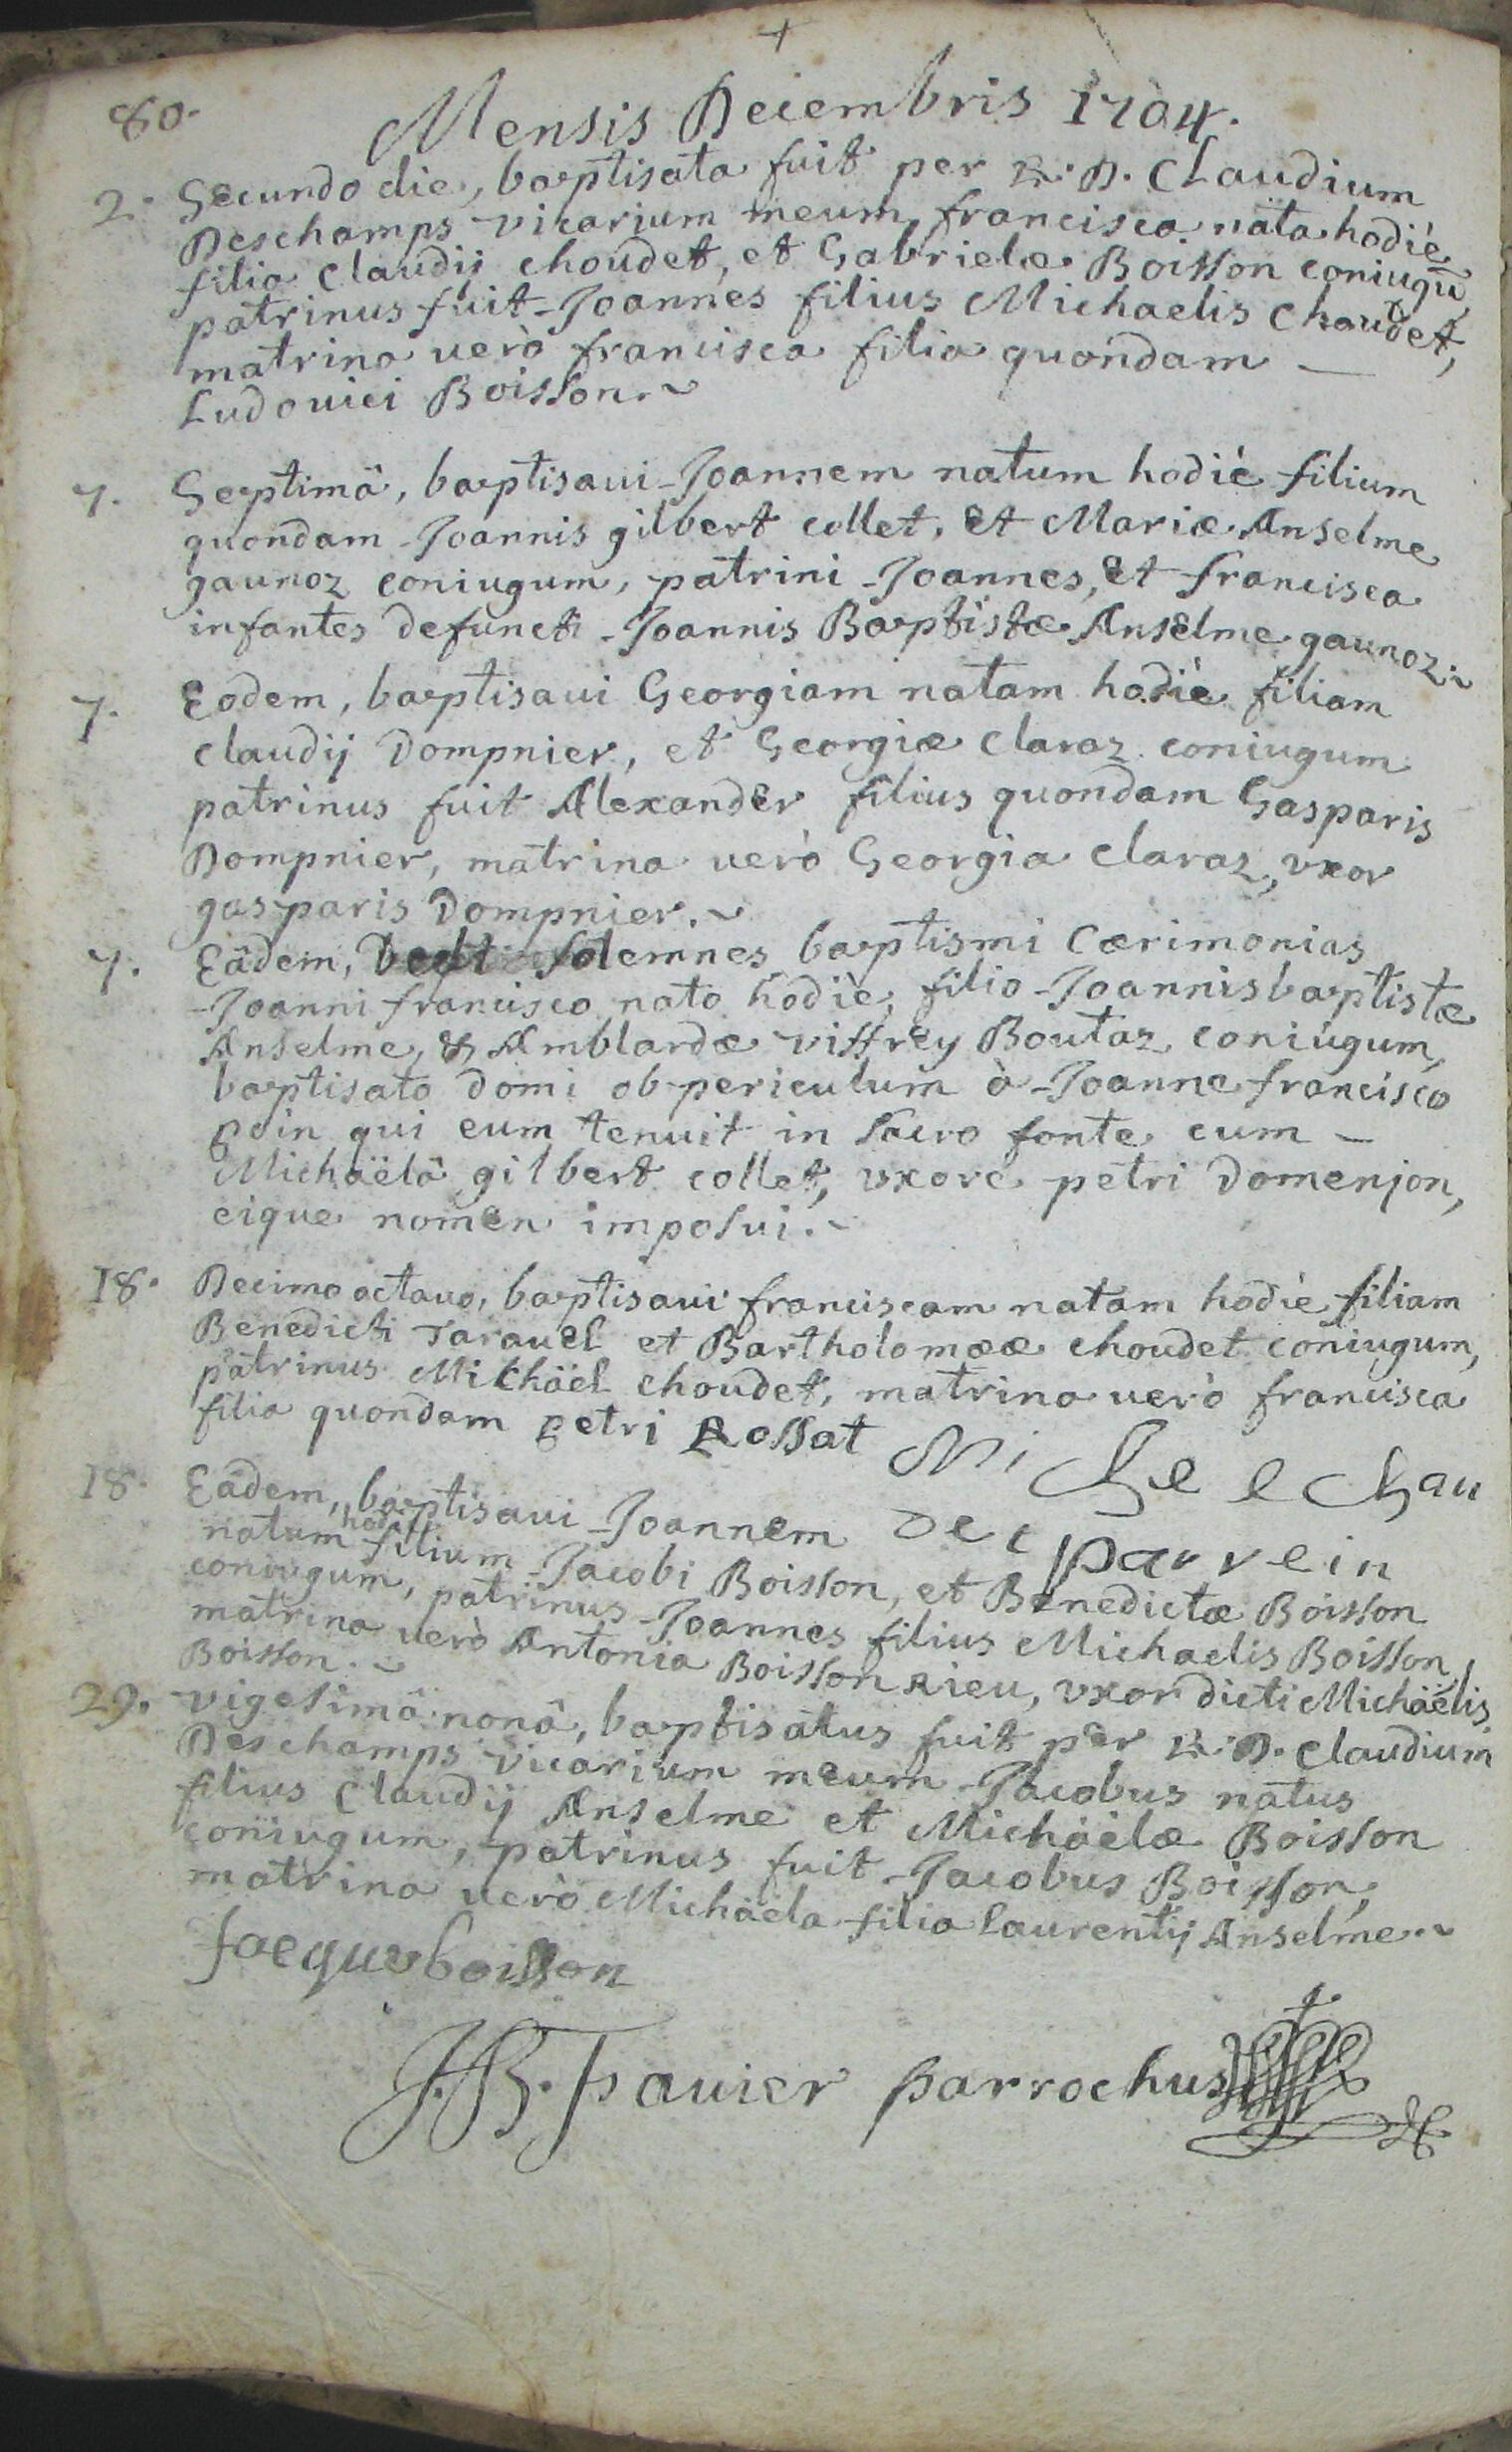 +
80.
Mensis Decembris 1704.
2. Secundo die, baptisata fuit per R.D. Claudium
Deschamps vicarium meum, francisca nata hodiè
filia Claudij choudet, et Gabrielæ Boisson coniugũ,
patrinus fuit Joannes filius Michaelis Choudet,
matrina uerò francisca filia quondam —
Ludouici Boisson.~
7. Septimâ, baptisaui Joannem natum hodiè filium
quondam Joannis gilbert collet, et Mariæ Anselme
gaunoz coniugum, patrini Joannes, et francisca
infantes defuncti Joannis Baptistæ Anselme gaunoz.~
7. Eodem, baptisaui Georgiam natam hodiè filiam
claudij Dompnier, et Georgiæ claraz coniugum
patrinus fuit Alexander filius quondam Gasparis
Dompnier, matrina uerò Georgia claraz, vxor
gasparis Dompnier.~
7. Eâdem, solemnes baptismi Cærimonias
Joanni francisco nato hodiè, filio Joannis baptistæ
Anselme, & Amblardæ viffrey Boutaz coniúgum,
baptisato domi ob periculum à Joanne francisco
qui eum tenuit in sacro fonte cum —
Michaëlâ gilbert collet, vxore petri Domenjon,
eique nomen imposui.~
18. Decimo octauo, baptisaui franciscam natam hodiè filiam
Benedicti Tarauel et Bartholomææ choudet coniugum,
patrinus Michäel choudet, matrina uerò francisca
filia quondam petri Rossat Michel Chau
det parrein
18. Eâdem, baptisaui Joannem
natum hodiè filium Jacobi Boisson, et Benedictæ Boisson
coniugum, patrinus Joannes filius Michaelis Boisson,
matrina uerò Antonia Boisson rieu, vxor dicti Michäelis
Boisson.~
29. vigesimâ nonâ, baptisatus fuit per R.D. Claudium
Deschamps vicarium meum Jacobus natus
filius Claudij Anselme et Michäelæ Boisson
coniugum, patrinus fuit Jacobus Boisson,
matrina uerò Michäela filia Laurentij Anselme.~
Jacque boisson
J.B. Favier parrochus